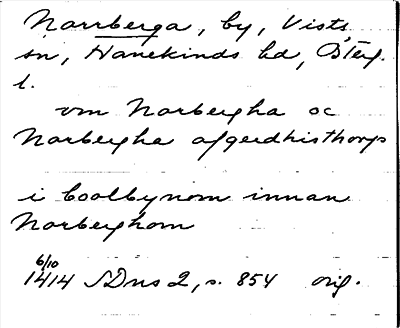 Norrberga, by, Vists
sn, Hanekinds hd, Ö'terg.
l.
vm Norbergha oc
Norbergha afgerdhisthorps
i boolbynom innan
Norberghom
6/10
1414 SDns 2, s. 854 orig.